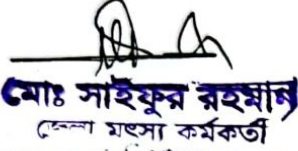 মোঃ সাইফুর রহমান
জেলা মৎস্য কর্মকর্তা